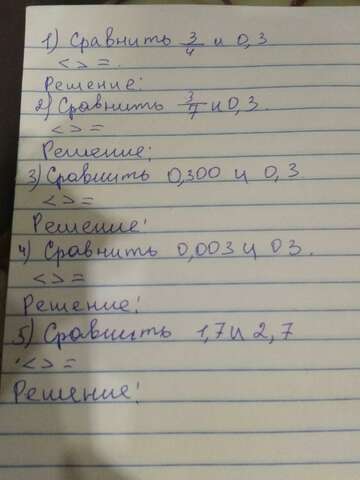 1) Сравнить 3/4 и 0,3
< > = .
Решение:
2) Сравнить 3/7 и 0,3.
< > =
Решение:
3) Сравнить 0,300 и 0,3
< > =
Решение:
4) Сравнить 0,003 и 03.
< > =
Решение:
5) Сравнить 1,7 и 2,7
< > =
Решение: